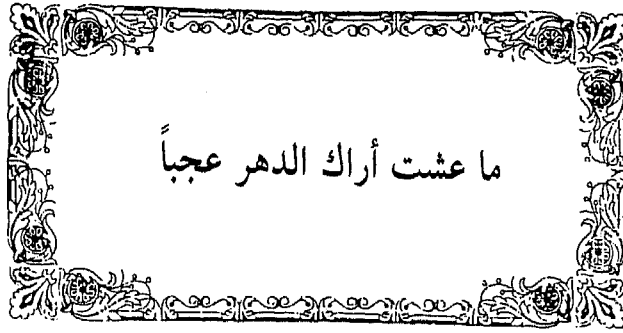 ما عشت أراك الدهر عجباً